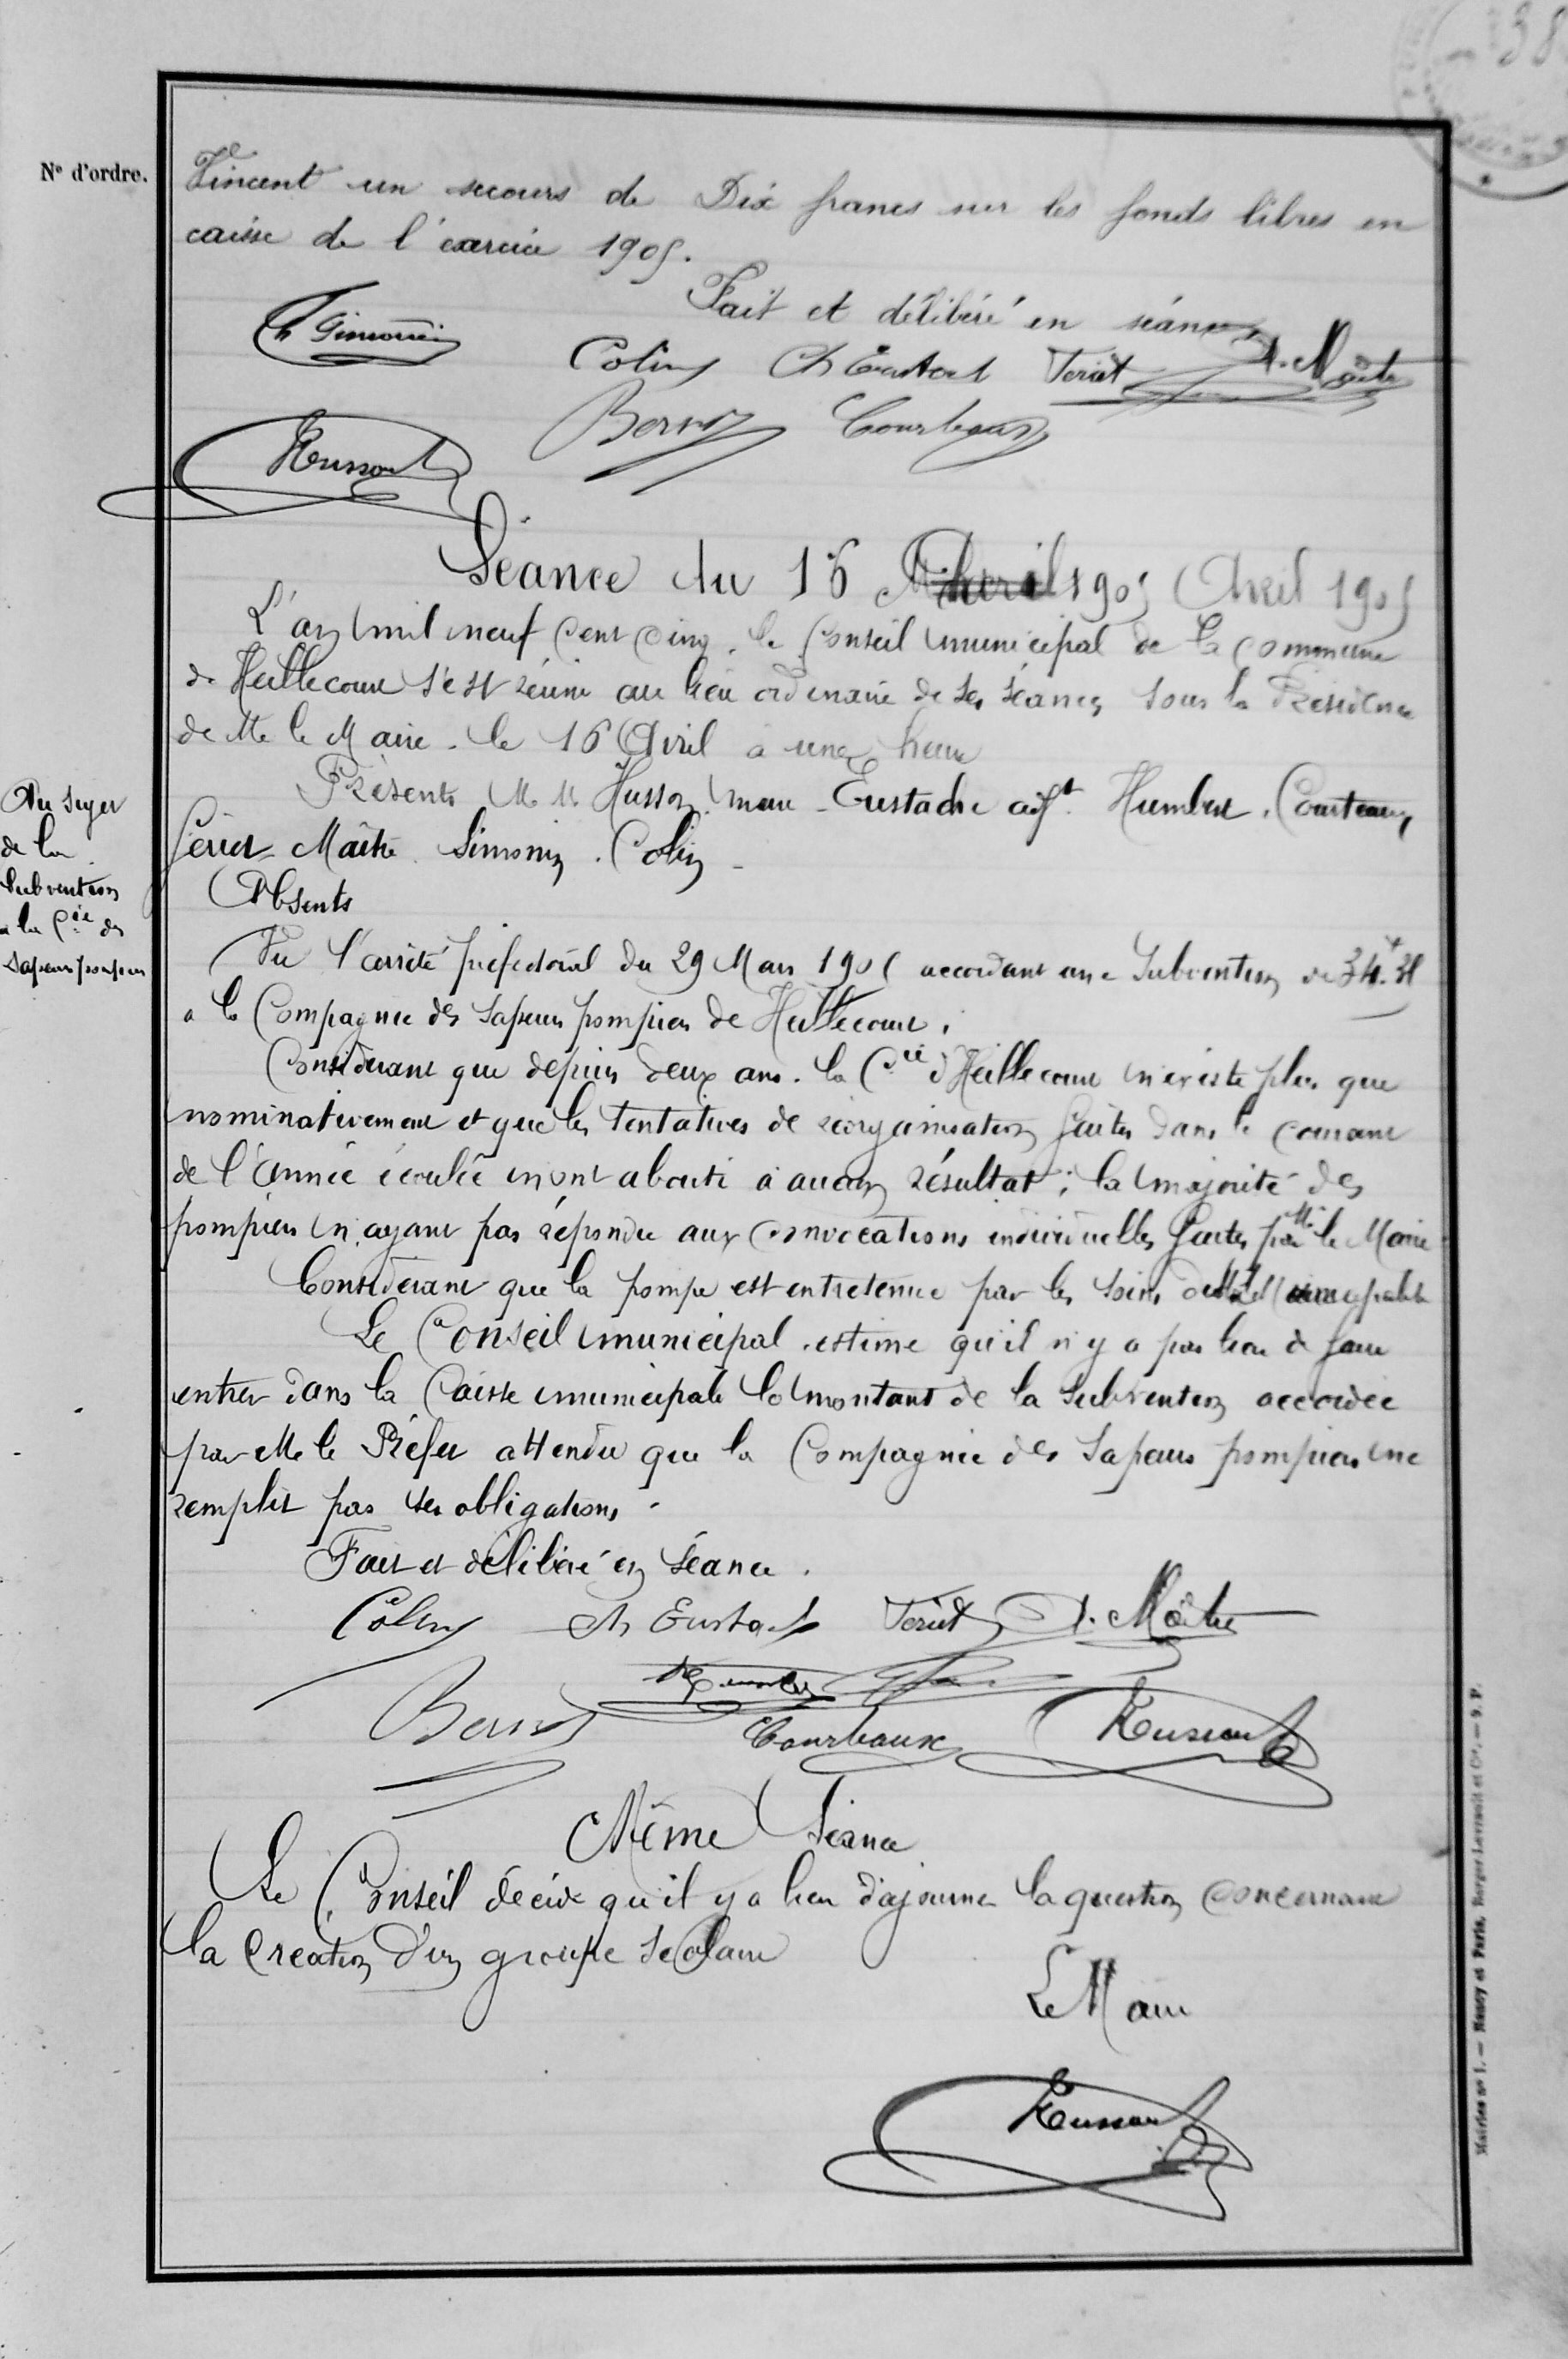 38
N° d'ordre.
Vincent un secours de Dix francs sur les fonds libres en
caisse de l'exercice 1905.
Fait et délibéré en séance
Ch Simonin
Colin Ch Eustach Feriet A. Maître
Courteaux
Husson
Séance du 16 Avril 1905
L'an mil neuf cent cinq, le Conseil municipal de la commune
de Heillecourt s'est réuni au lieu ordinaire de ses séances sous la Présidence
de M. le Maire. le 16 Avril à une heure
Présents M M Husson, maire - Eustache adjt. Humbert, Courteaux,
Feriet - Maître. Simonin. Colin -
Absents
Au sujet
de la
subvention
à la Cie des
sapeurs pompiers
Vu l'arrêté préfectoral du 29 Mars 1905 accordant une Subvention de 34f.31
a la Compagnie des Sapeurs pompiers de Heillecourt.
Considérant que depuis deux ans. la Cie d'Heillecourt n'existe plus que
nominativement et que les tentatives de réorganisation faites dans le courant
de l'année écoulée n'ont abouti à aucun résultat; la majorité des
pompiers n'ayant pas répondu aux convocations individuelles faites par M. le Maire
Considérant que la pompe est entretenue par les soins de la Municipalité
Le Conseil municipal. estime qu'il n'y a pas lieu de faire
entrer dans la Caisse municipale le montant de la Subvention accordée
par M. le Préfet attendu que la Compagnie des Sapeurs pompiers ne
remplit pas ses obligations.
Fait et délibéré en Séance.
Colin Ch Eustach Feriet A. Maître
Courteaux Husson
Même Séance
Le Conseil décide qu'il y a lieu d'ajourner la question concernant
la Création d'un groupe scolaire
Le Maire
Husson
Mairies n° 1. — Nancy et Paris. Berger-Levrault et Cie. — S. P.